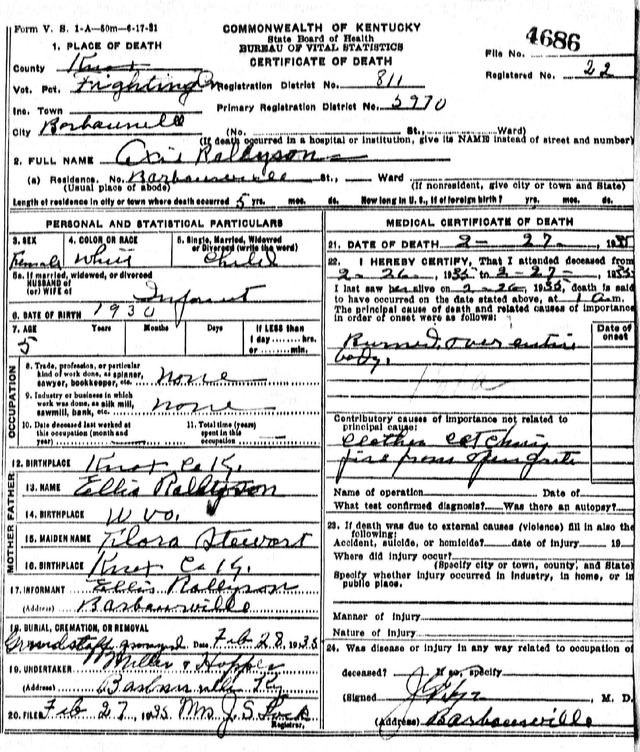 Form V. S. 1-A—50m—6-17-31
COMMONWEALTH OF KENTUCKY
State Board of Health
BUREAU OF VITAL STATISTICS
CERTIFICATE OF DEATH
4686
File No.
Registered No. 22
1. PLACE OF DEATH
County Knox
Vot. Pct. Fighting Registration District No. 811
Inc. Town Primary Registration District No. 5970
City Barbourville (No. St., Ward)
(If death occurred in a hospital or institution, give its NAME instead of street and number)
2. FULL NAME Oxie Rallyson
(a) Residence. No. Barbourville St., Ward
(Usual place of abode) (If nonresident, give city or town and State)
Length of residence in city or town where death occurred 5 yrs. mos. ds. How long in U. S., if of foreign birth? yrs. mos. ds.
PERSONAL AND STATISTICAL PARTICULARS
3. SEX
Female
4. COLOR OR RACE
White
5. Single, Married, Widowed or Divorced (write the word)
Child
5a. If married, widowed, or divorced
HUSBAND of
(or) WIFE of Infant
6. DATE OF BIRTH 1930
7. AGE Years Months Days If LESS than
5 1 day hrs.
or min.
OCCUPATION
8. Trade, profession, or particular kind of work done, as spinner, sawyer, bookkeeper, etc. none
9. Industry or business in which work was done, as silk mill, sawmill, bank, etc. none
10. Date deceased last worked at this occupation (month and year)
11. Total time (years) spent in this occupation
12. BIRTHPLACE Knox Co Ky.
MOTHER FATHER
13. NAME Ellis Rallyson
14. BIRTHPLACE W va.
15. MAIDEN NAME Flora Stewart
16. BIRTHPLACE Knox Co Ky.
17. INFORMANT Ellis Rallyson
(Address) Barbourville
18. BURIAL, CREMATION, OR REMOVAL
Date Feb 28, 1935
19. UNDERTAKER Miller & Hopper
(Address) Barbourville Ky
20. FILED Feb 27, 1935 Mrs J. S.
Registrar.
MEDICAL CERTIFICATE OF DEATH
21. DATE OF DEATH 2-27-, 1935
22. I HEREBY CERTIFY, That I attended deceased from
2-26, 1935 to 2-27-, 1935
I last saw her alive on 2-26, 1935, death is said
to have occurred on the date stated above, at 1 a.m.
The principal cause of death and related causes of importance
in order of onset were as follows:
Date of onset
Burned over entire
body.
Contributory causes of importance not related to
principal cause:
Clothes catching
fire from open grate
Name of operation Date of
What test confirmed diagnosis? Was there an autopsy?
23. If death was due to external causes (violence) fill in also the
following:
Accident, suicide, or homicide? date of injury 19
Where did injury occur?
(Specify city or town, county, and State)
Specify whether injury occurred in industry, in home, or in
public place.
Manner of injury
Nature of injury
24. Was disease or injury in any way related to occupation of
deceased? If so, specify
(Signed M. D.
(Address) Barbourville